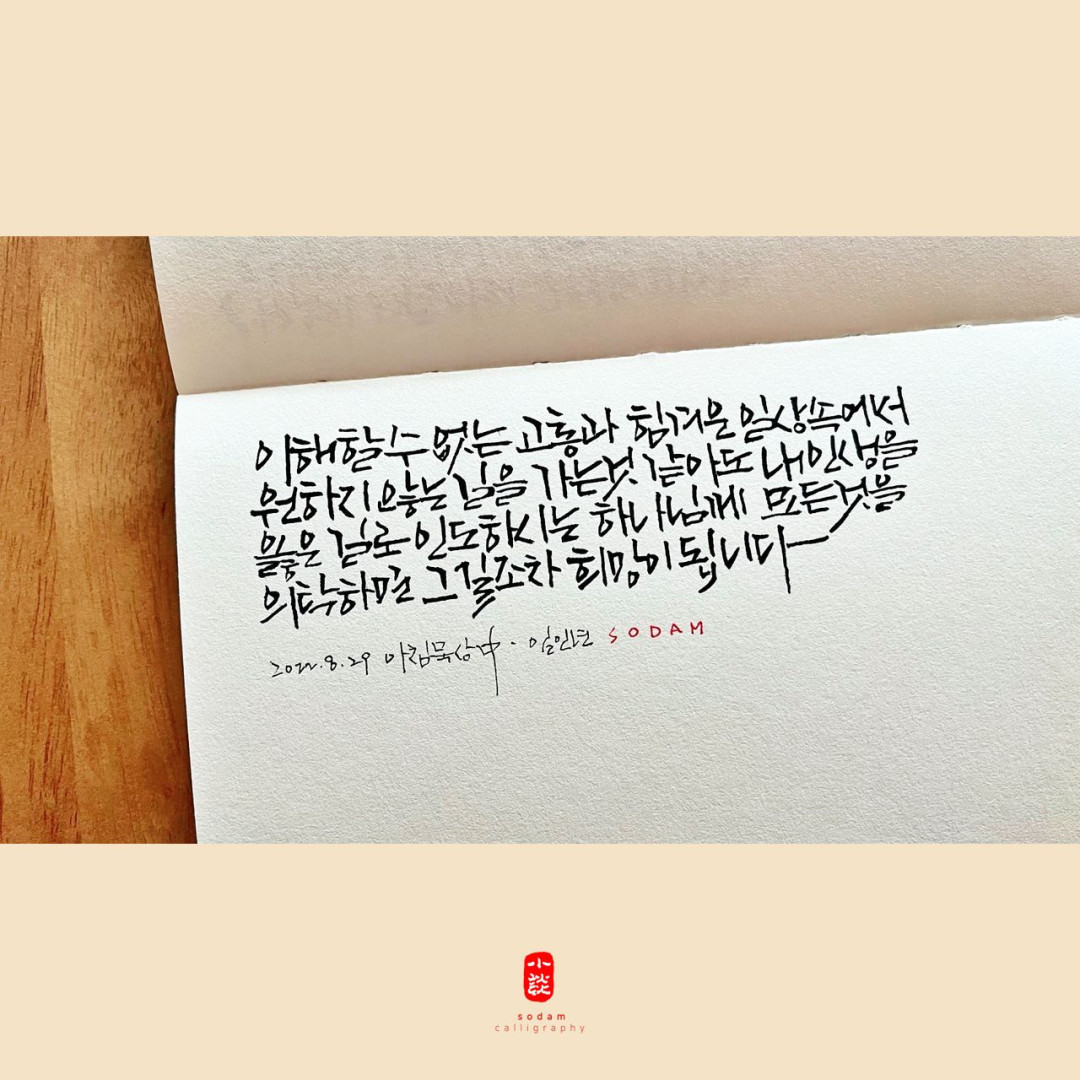 이해할 수 없는 고통과 힘겨운 일상속에서
원하지 않는 길을 가는것 같아도 내 인생을
옳은 길로 인도하시는 하나님께 모든것을
의탁하면 그길조차 희망이 됩니다
2022.8.29 아침묵상中·일인년 SODAM
小談
sodam
calligraphy